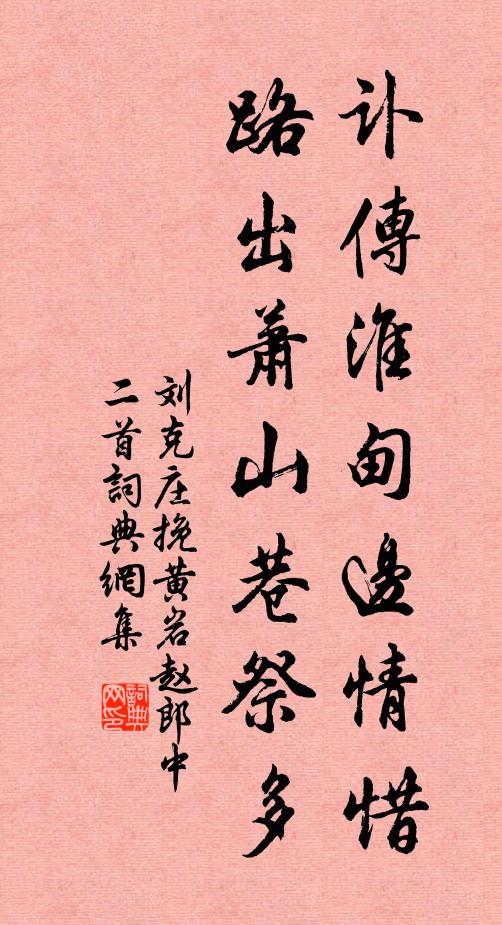 訃傳淮甸邊情惜
路出蕭山巷祭多
刘克庄挽黄岩赵郎中
二首詞典網集
詞典网印